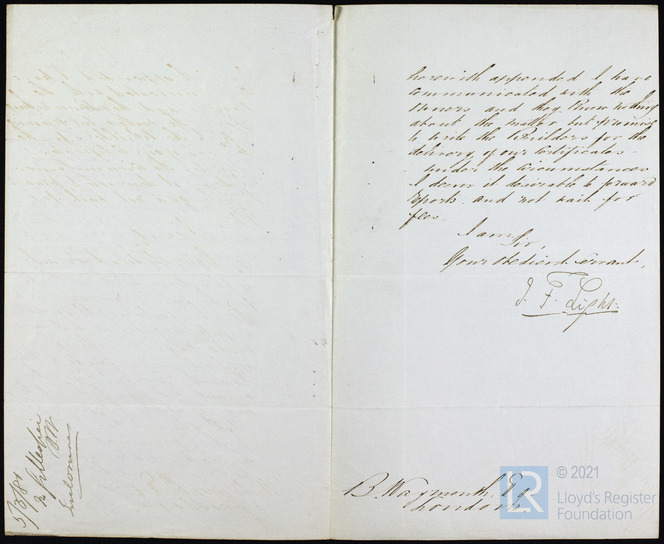 herewith appended I have
communicated with the
Owners and they know nothing
about the matter but promise
to write the Builders for the
delivery of our Certificates.
Under the circumstances
I deem it desirable to forward
reports and not wait for
fees.
I am
Sir,
Your obedient servant,
J. F. Light.
B. Waymouth, Esq
London
5/3/81
© 2021
LR
Lloyd's Register
Foundation